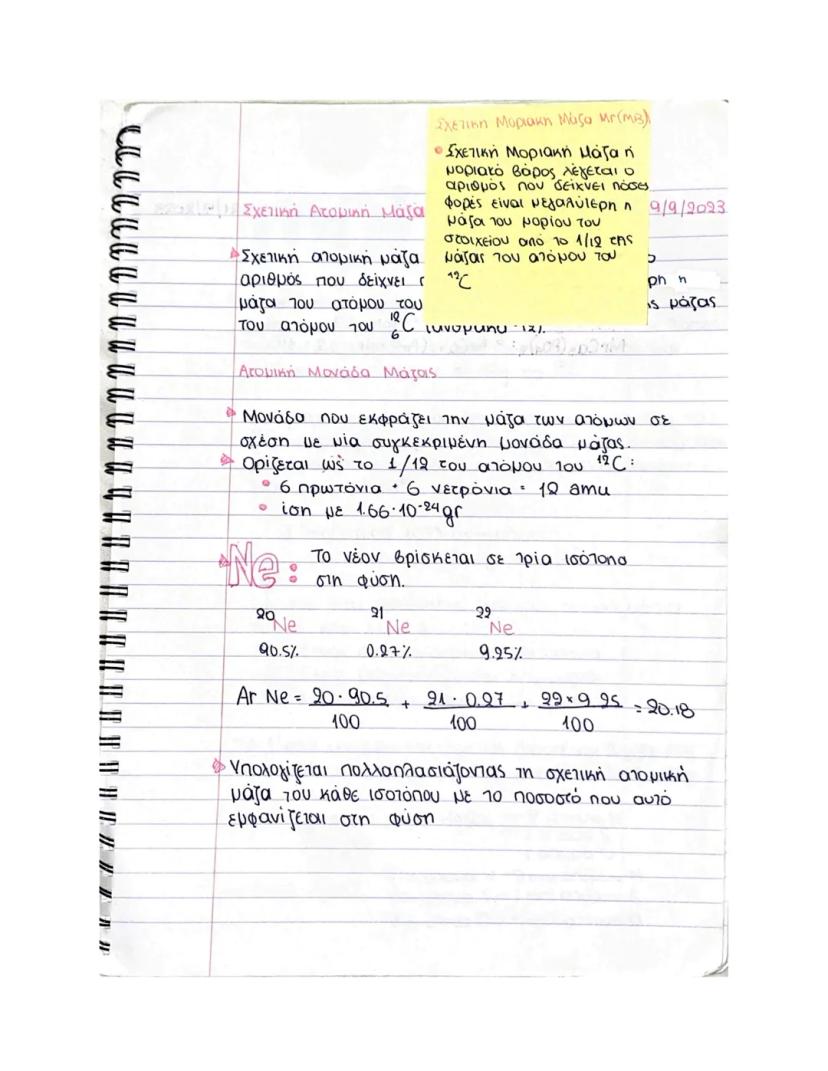 Σχετική Μοριακή Μάζα Mr(MB)
Σχετική Μοριακή Μάζα ή
μοριακό βάρος λέγεται ο
αριθμός που δείχνει πόσες
φορές είναι μεγαλύτερη η
μάζα του μορίου του
στοιχείου από το 1/12 της
μάζας του ατόμου του
¹²C
Σχετική Ατομική Μάζα 9/9/2023
Σχετική ατομική μάζα
αριθμός που δείχνει ρη η
μάζα του ατόμου του ς μάζας
του ατόμου του ¹²₆C
Ατομική Μονάδα Μάζας
Μονάδα που εκφράζει την μάζα των ατόμων σε
σχέση με μία συγκεκριμένη μονάδα μάζας.
Ορίζεται ώς το 1/12 του ατόμου του ¹²C:
6 πρωτόνια + 6 νετρόνια = 12 amu
ίση με 1.66·10⁻²⁴gr
Ne: Το νέον βρίσκεται σε τρία ισότοπα
στη φύση.
²⁰Ne ²¹Ne ²²Ne
90.5% 0.27% 9.25%
Ar Ne = 20·90.5/100 + 21·0.27/100 + 22×9.25/100 = 20.18
Υπολογίζεται πολλαπλασιάζοντας τη σχετική ατομική
μάζα του κάθε ισοτόπου με το ποσοστό που αυτό
εμφανίζεται στη φύση